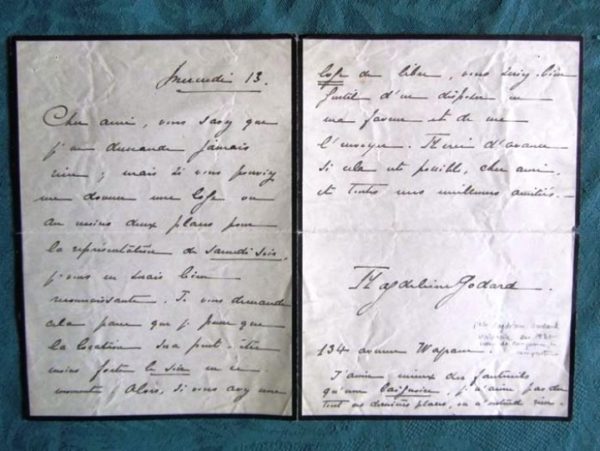 Mercredi 13.
Cher ami, vous savez que
je ne demande jamais
rien ; mais si vous pouviez
me donner une loge ou
au moins deux places pour
la représentation de samedi soir,
je vous en serais bien
reconnaissante. Je vous demande
cela parce que je pense que
la location sera peut-être
moins forte le soir en ce
moment. Alors, si vous avez une
loge de libre, vous seriez bien
gentil d'en disposer en
ma faveur et de me
l'envoyer. Merci d'avance
si cela est possible, cher ami,
et toutes mes meilleures amitiés. -
Magdeleine Godard.
134 avenue Wagram.
J'aime mieux des fauteuils
qu'une baignoire, je n'aime pas du
tout ces dernières places, on n'entend rien.